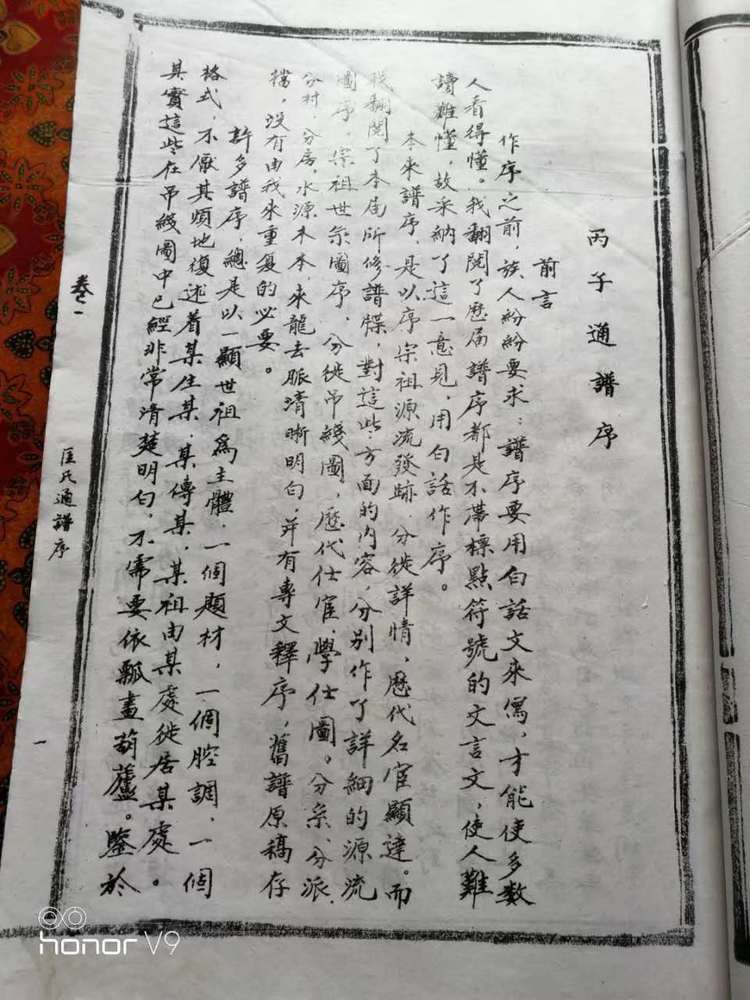 丙子通譜序
前言
作序之前，族人紛紛要求：譜序要用白話文來寫，才能使多數
人看得懂。我翻閱了歷屆譜序都是不帶標點符號的文言文，使人難
讀難懂，故采納了這一意見，用白話作序。
本來譜序，是以序宗祖源流發跡，分徙詳情，歷代名宦顯達。而
我翻閱了本屆所修譜牒，對這些方面的內容，分別作了詳細的源流
圖序，宗祖世系圖序，分徙吊綫圖，歷代仕宦，學仕圖。分系、分派、
分村，分房，水源木本，來龍去脈清晰明白，并有專文釋序，舊譜原稿存
檔，沒有由我來重复的必要。
許多譜序，總是以一顯世祖爲主體，一個題材，一個腔調，一個
格式，不厭其煩地復述着某生某，某傳某，某祖由某處徙居某處。
其實這些在吊綫圖中已經非常清楚明白，不需要依瓢畫葫蘆。鑒於
卷一
匡氏通譜序
一
honor V9